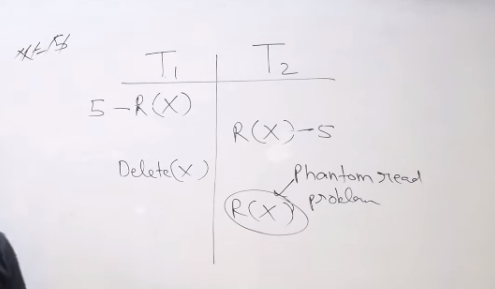 T1 T2
5-R(X)
R(X)-5
Delete(X)
Phantom read
problem
R(X)